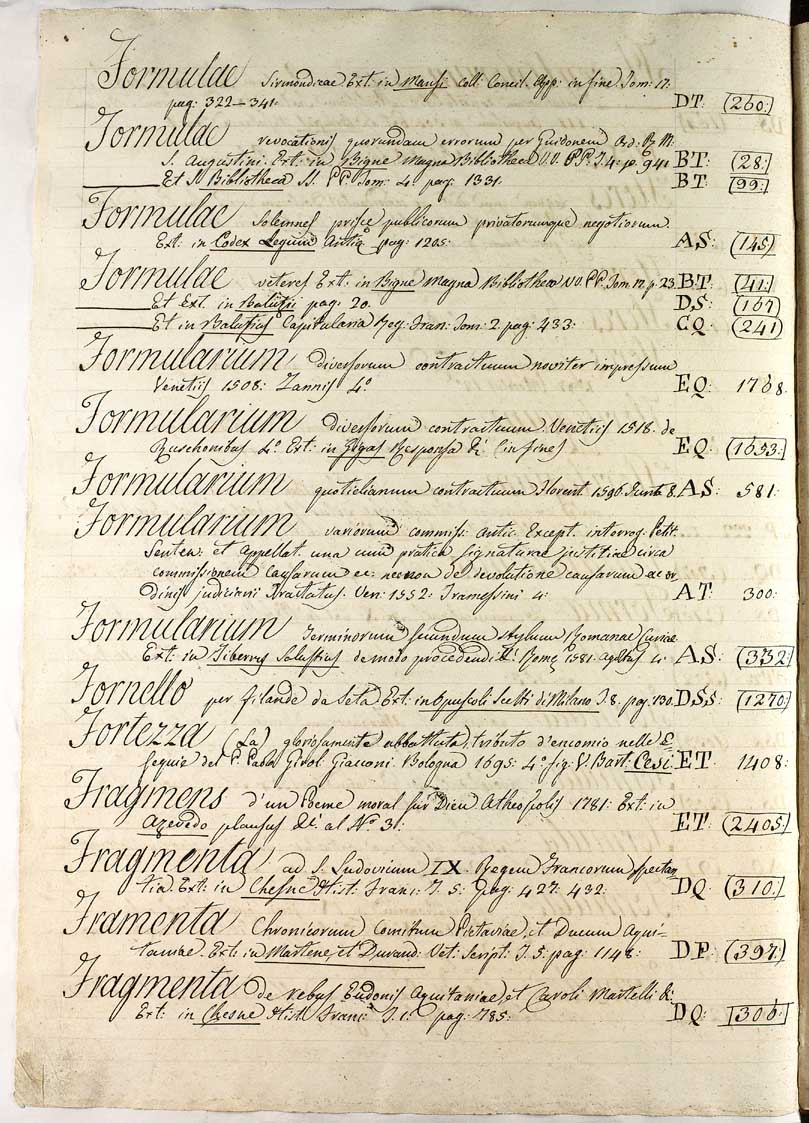 Formulae Sirmondicae Ext: in Mansi coll: Concil. App: in fine Tom: 17.
pag: 322—341. DT: (260:)
Formulae revocationis quorundam errorum per Guidonem Ord:
S. Augustini. Ext: in Bigne Magna Bibliotheca V.V. P.P. T. 4. p. 941 BT: (28:)
Et Bibliotheca SS. P.P. Tom: 4. pag: 1331. BT (99:)
Formulae Solemnes priscae publicorum privatorumque negotiorum.
Ext: in Codex Legum Antiq. pag: 1205: A.S: (145)
Formulae veteres Ext: in Bigne Magna Bibliotheca V.V. P.P. Tom. p. 23. BT: (41:)
Et Ext. in Balutii pag: 20. D.S: (167
Et in Balutius Capitularia Reg: Fran: Tom: 2. pag: 433: CQ: (241)
Formularium diversorum contractuum noviter impressum
Venetiis 1508: Zannis 4.o EQ: 1768.
Formularium diversorum contractuum Venetiis 1518. de
Ruschonibus 4.o Ext: in Gigas Responsa &c. (in fine) EQ: (1653:)
Formularium quotidianum contractuum Florent. 1596 Junta 8. A.S: 581:
Formularium variorum commiss: Artic. Except. interrog. Petit.
Senten. et Appellat. una cum pratica signaturae justitiae circa
commissionem Causarum ec: necnon de devolutione causarum ac or
dinis judiciarii Tractatus. Ven: 1552: Tramessini 4: AT: 300:
Formularium Terminorum secundum stylum Romanae Curiae
Ext: in Tiberius Salustius de modo procedendi &c. Romę 1581. 4: A.S: (332:)
Fornello per filande da Seta. Ext: in Opuscoli Scelti di Milano T. 8. pag: 130. D.S.S: (1270:)
Fortezza (La) gloriosamente abbattuta, tributo d'encomio nelle E.
sequie del P. Paolo Girol. Giaconi. Bologna 1695: 4.o fig: V. Bart. Cesi. ET: 1408:
Fragmens d'un Poeme moral sur Dieu Atheopolis 1781: Ext: in
Azevedo plausus &c. al N.o 31: ET: (2405:)
Fragmenta ad S. Ludovicum IX. Regem Francorum spectan
tia. Ext: in Chesne Hist: Franc: T. 5: pag: 427: 432: DQ: (310:)
Framenta Chronicorum Comitum Pictaviae, et Ducum Aqui=
taniae. Ext: in Martene, et Durand: Vet: Script: T. 5. pag: 1148: D.P: (397:)
Fragmenta de rebus Eudonis Aquitaniae, et Caroli Martelli &c.
Ext: in Chesne Hist: Franc: T. 1: pag: 785: DQ: (306: